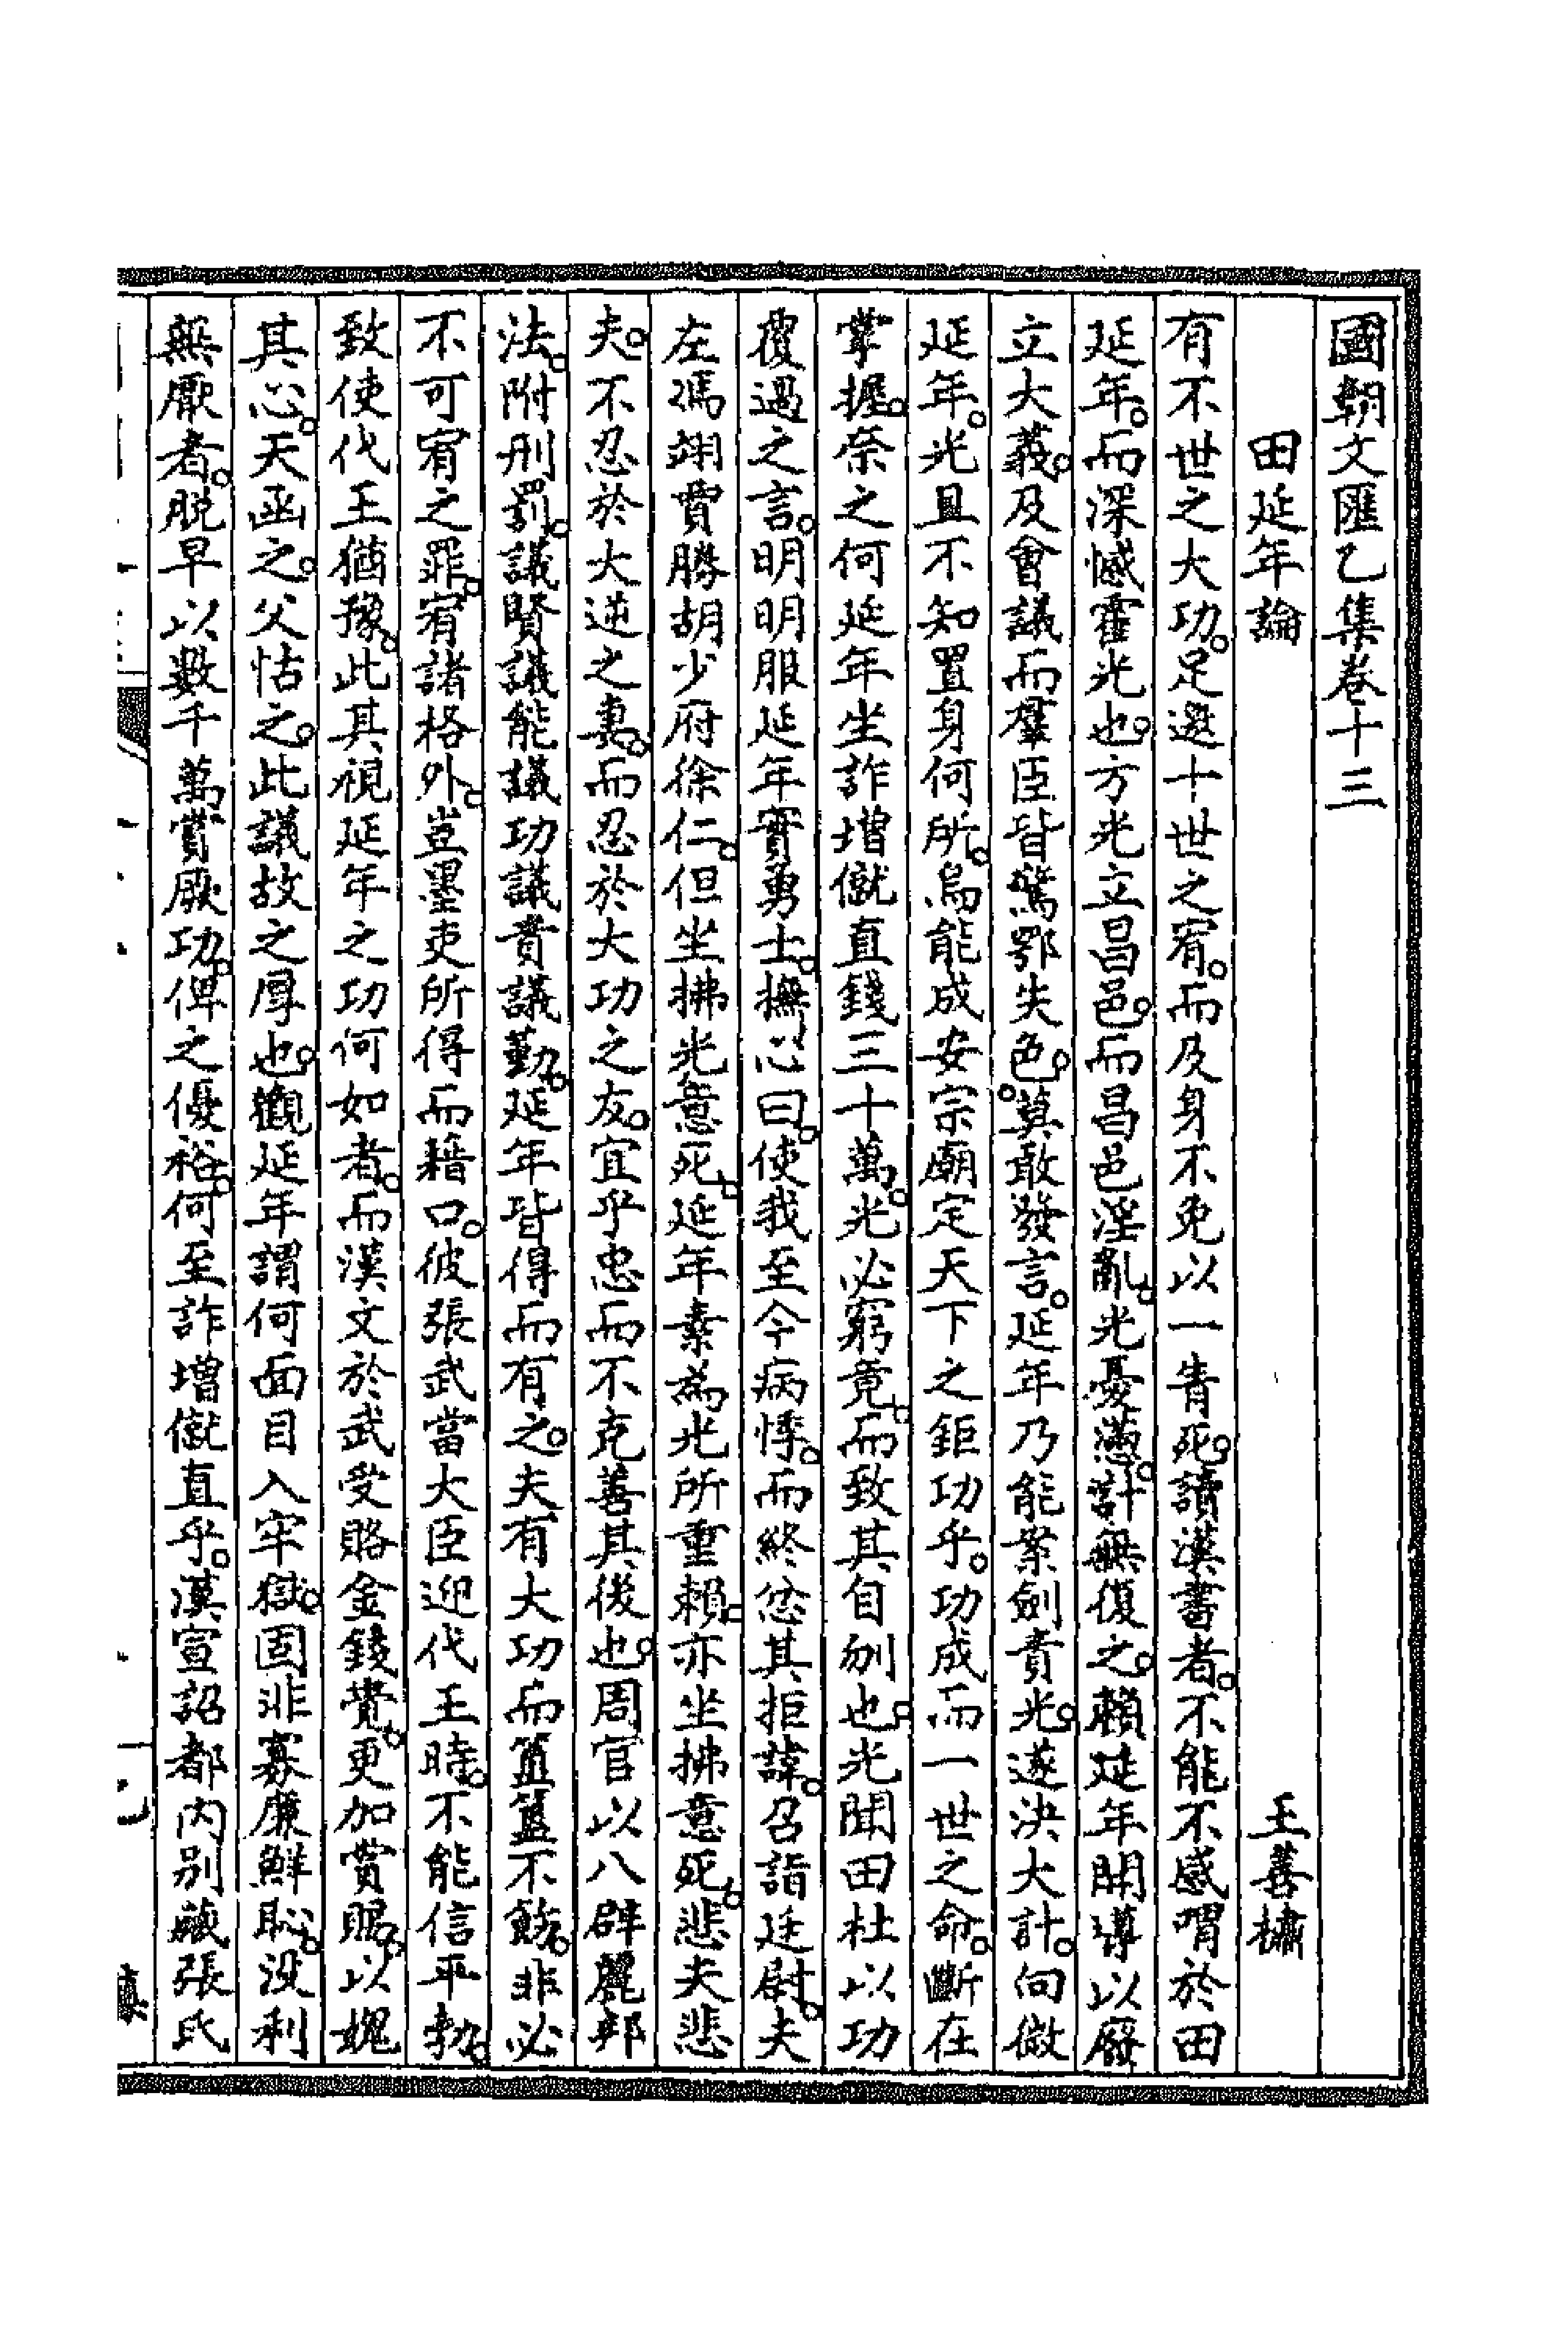 國朝文匯乙集卷十三
田延年論 王善櫹
有不世之大功。足邀十世之宥。而及身不免以一眚死。讀漢書者。不能不慼喟於田
延年。而深憾霍光也。方光立昌邑。而昌邑淫亂。光憂懣。計無復之。賴延年開導以廢
立大義。及會議而羣臣皆驚鄂失色。莫敢發言。延年乃能案劍責光。遂決大計。向微
延年。光且不知置身何所。烏能成安宗廟定天下之鉅功乎。功成而一世之命。斷在
掌握。奈之何延年坐詐增僦直錢三十萬。光必窮竟。而致其自刎也。光聞田杜以功
覆過之言。明明服延年實勇士。撫心曰。使我至今病悸。而終忿其拒諱。召詣廷尉。夫
左馮翊賈勝胡少府徐仁。但坐拂光意死。延年素為光所重賴。亦坐拂意死。悲夫悲
夫。不忍於大逆之妻。而忍於大功之友。宜乎忠而不克善其後也。周官以八辟麗邦
法。附刑罰。議賢議能議功議貴議勤。延年皆得而有之。夫有大功而簠簋不飭。非必
不可宥之罪。宥諸格外。豈墨吏所得而藉口。彼張武當大臣迎代王時。不能信平勃。
致使代王猶豫。此其視延年之功何如者。而漢文於武受賂金錢覺。更加賞賜。以媿
其心。天函之。父怙之。此議故之厚也。觀延年謂何面目入牢獄。固非寡廉鮮恥。沒利
無厭者。脫早以數千萬賞厥功。俾之優裕。何至詐增僦直乎。漢宣詔都內别藏張氏